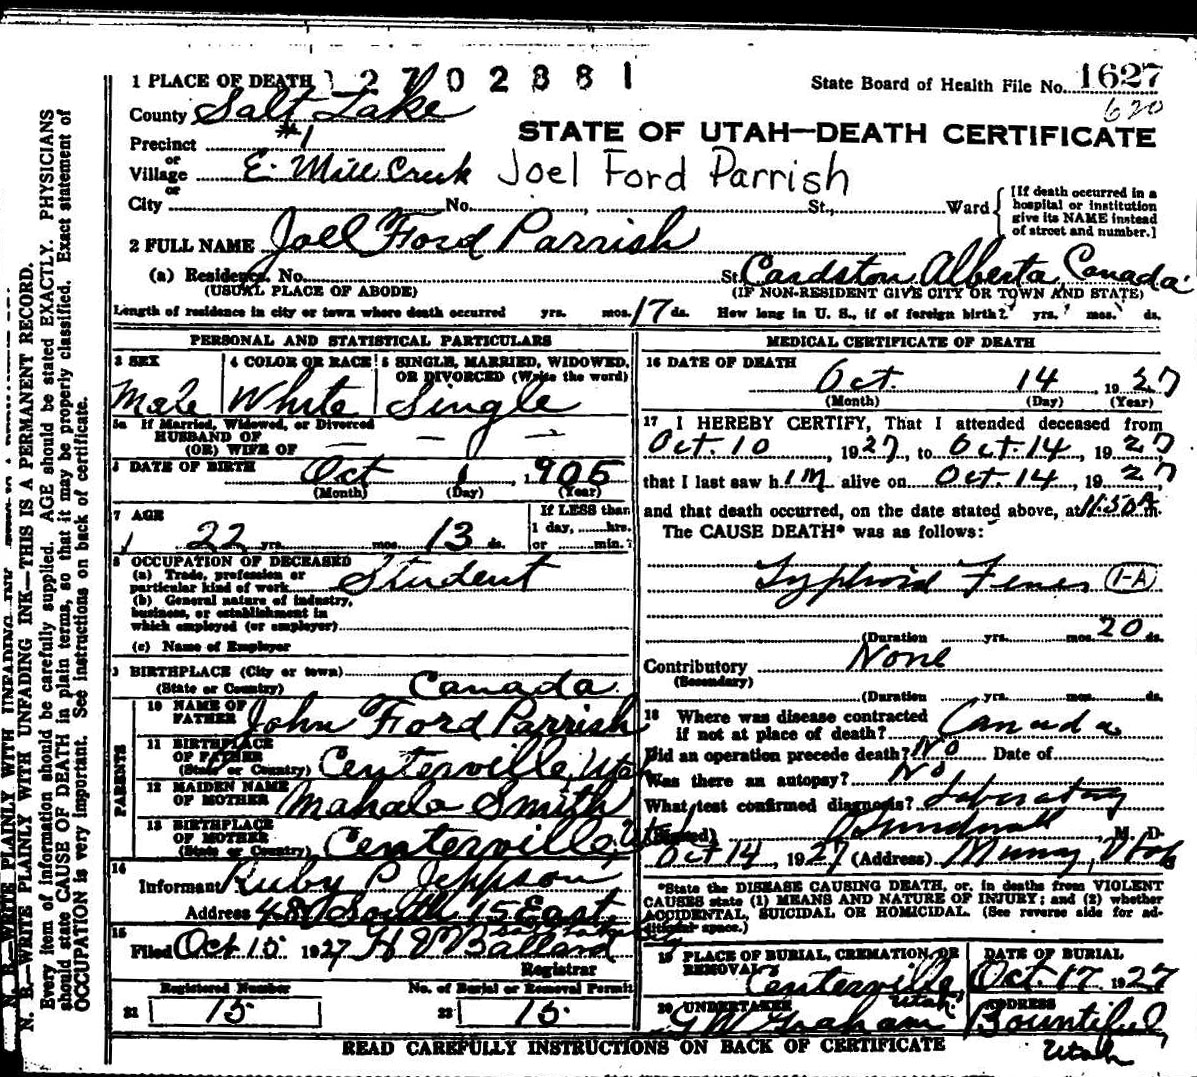 1 PLACE OF DEATH 2702881
State Board of Health File No. 1627
620
County Salt Lake
STATE OF UTAH—DEATH CERTIFICATE
Precinct #1
or
Village E. Mill Creek Joel Ford Parrish
or
City No. , St., Ward
[If death occurred in a
hospital or institution
give its NAME instead
of street and number.]
2 FULL NAME Joel Ford Parrish
(a) Residence. No. St. Cardston Alberta, Canada
(USUAL PLACE OF ABODE) (IF NON-RESIDENT GIVE CITY OR TOWN AND STATE)
Length of residence in city or town where death occurred yrs. mos. 17 ds. How long in U. S., if of foreign birth? yrs. mos. ds.
PERSONAL AND STATISTICAL PARTICULARS
3 SEX Male
4 COLOR OR RACE White
5 SINGLE, MARRIED, WIDOWED,
OR DIVORCED (Write the word)
Single
5a If Married, Widowed, or Divorced
HUSBAND OF
(OR) WIFE OF — — —
6 DATE OF BIRTH Oct 1, 1905
(Month) (Day) (Year)
7 AGE
22 yrs. mos. 13 ds.
If LESS than
1 day, hrs.
or min.?
8 OCCUPATION OF DECEASED
(a) Trade, profession or
particular kind of work Student
(b) General nature of industry,
business, or establishment in
which employed (or employer)
(c) Name of Employer
9 BIRTHPLACE (City or town)
(State or Country) Canada
PARENTS
10 NAME OF
FATHER John Ford Parrish
11 BIRTHPLACE
OF FATHER
(State or Country) Centerville, Utah
12 MAIDEN NAME
OF MOTHER Mahala Smith
13 BIRTHPLACE
OF MOTHER
(State or Country) Centerville, Utah
14
Informant Ruby P. Jeppson
Address South 15 East
15
Filed Oct 15 1927 H Ballard
Registrar
Registered Number
21 15
No. of Burial or Removal Permit
22 15
MEDICAL CERTIFICATE OF DEATH
16 DATE OF DEATH
Oct. 14 1927
(Month) (Day) (Year)
17 I HEREBY CERTIFY, That I attended deceased from
Oct. 10, 1927, to Oct. 14, 1927,
that I last saw him alive on Oct. 14, 1927,
and that death occurred, on the date stated above, at 11:50 A m.
The CAUSE DEATH* was as follows:
Typhoid Fever 1-A
(Duration yrs. mos. 20 ds.
Contributory None
(Secondary)
(Duration yrs. mos. ds.
18 Where was disease contracted
if not at place of death? Canada
Did an operation precede death? No Date of
Was there an autopsy? No
What test confirmed diagnosis? Laboratory
(Signed) M. D.
Oct 14, 1927 (Address) Murray, Utah
*State the DISEASE CAUSING DEATH, or, in deaths from VIOLENT
CAUSES state (1) MEANS AND NATURE OF INJURY; and (2) whether
ACCIDENTAL, SUICIDAL OR HOMICIDAL. (See reverse side for ad-
ditional space.)
19 PLACE OF BURIAL, CREMATION, OR
REMOVAL
Centerville
Utah
DATE OF BURIAL
Oct. 17 1927
20 UNDERTAKER
G W Graham
ADDRESS
Bountiful,
Utah
READ CAREFULLY INSTRUCTIONS ON BACK OF CERTIFICATE
N. B.—WRITE PLAINLY WITH UNFADING INK—THIS IS A PERMANENT RECORD.
Every item of information should be carefully supplied. AGE should be stated EXACTLY. PHYSICIANS
should state CAUSE OF DEATH in plain terms, so that it may be properly classified. Exact statement of
OCCUPATION is very important. See instructions on back of certificate.